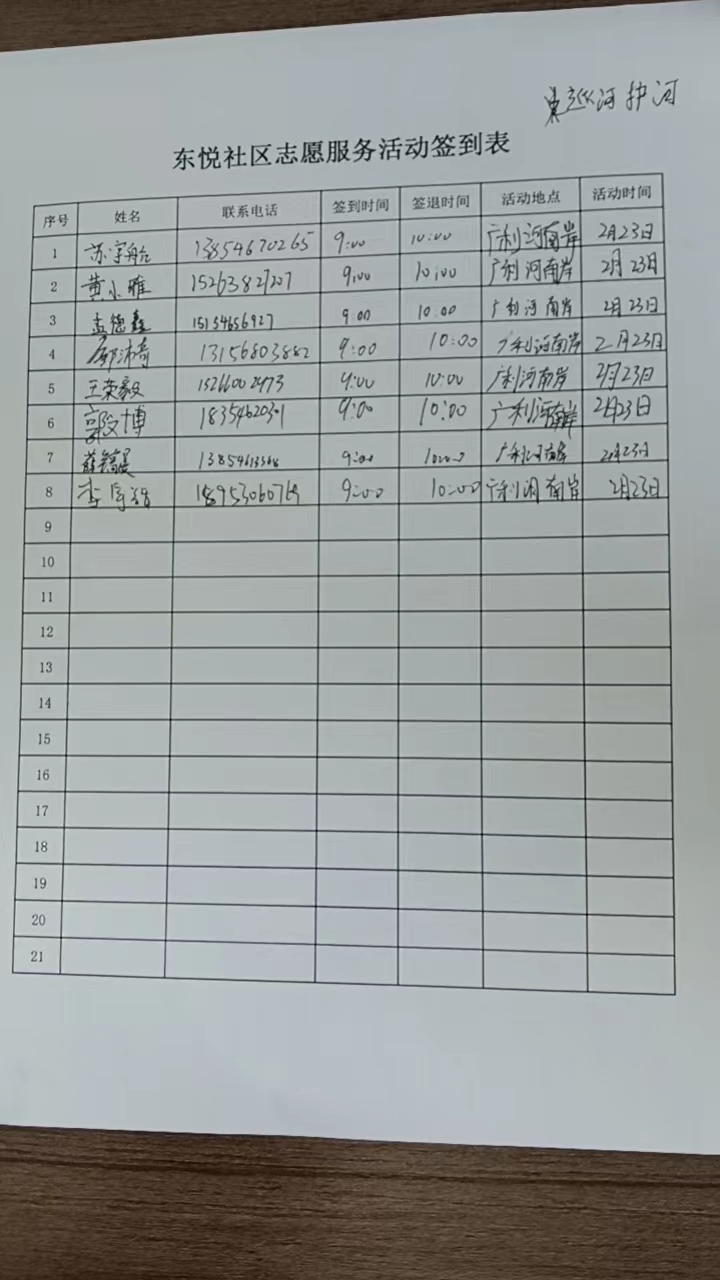 巡河护河
东悦社区志愿服务活动签到表
序号 姓名 联系电话 签到时间 签退时间 活动地点 活动时间
1 苏宇 13854670265 9:00 10:00 广利河南岸 2月23日
2 黄小雅 15263827207 9:00 10:00 广利河南岸 2月23日
3 孟德鑫 15154656927 9:00 10:00 广利河南岸 2月23日
4 沛奇 13156803882 9:00 10:00 广利河南岸 2月23日
5 王荣毅 15266002973 9:00 10:00 广利河南岸 2月23日
6 郭文博 9:00 10:00 广利河南岸 2月23日
7 9:00 10:00 广利河南岸 2月23日
8 李 9:00 10:00 广利河南岸 2月23日
9
10
11
12
13
14
15
16
17
18
19
20
21